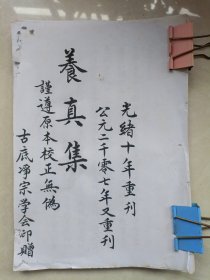 光緒十年重刊
公元二千零七年又重刊
養真集
謹遵原本校正無偽
古底淨宗学会印贈